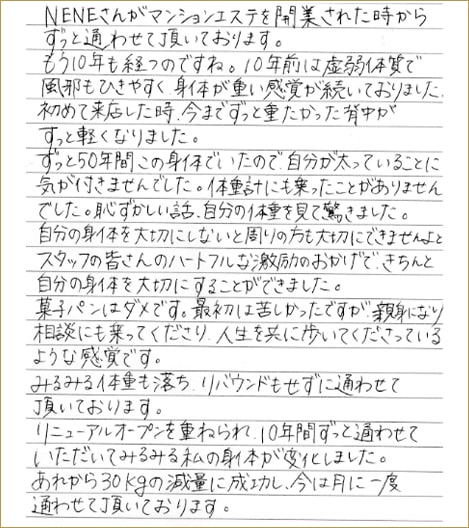 NENEさんがマンションエステを開業された時から
ずっと通わせて頂いております。
もう10年も経つのですね。10年前は虚弱体質で
風邪もひきやすく、身体が重い感覚が続いておりました。
初めて来店した時、今までずっと重たかった背中が
すっと軽くなりました。
ずっと50年間この身体でいたので、自分が太っていることに
気が付きませんでした。体重計にも乗ったことがありません
でした。恥ずかしい話、自分の体重を見て驚きました。
自分の身体を大切にしないと周りの方も大切にできませんよと
スタッフの皆さんのハートフルな激励のおかげで、きちんと
自分の身体を大切にすることができました。
菓子パンはダメです。最初は苦しかったですが、親身になり
相談にも乗ってくださり、人生を共に歩いてくださっている
ような感覚です。
みるみる体重も落ち、リバウンドもせずに通わせて
頂いております。
リニューアルオープンを重ねられ、10年間ずっと通わせて
いただいてみるみる私の身体が変化しました。
あれから30kgの減量に成功し、今は月に一度
通わせて頂いております。